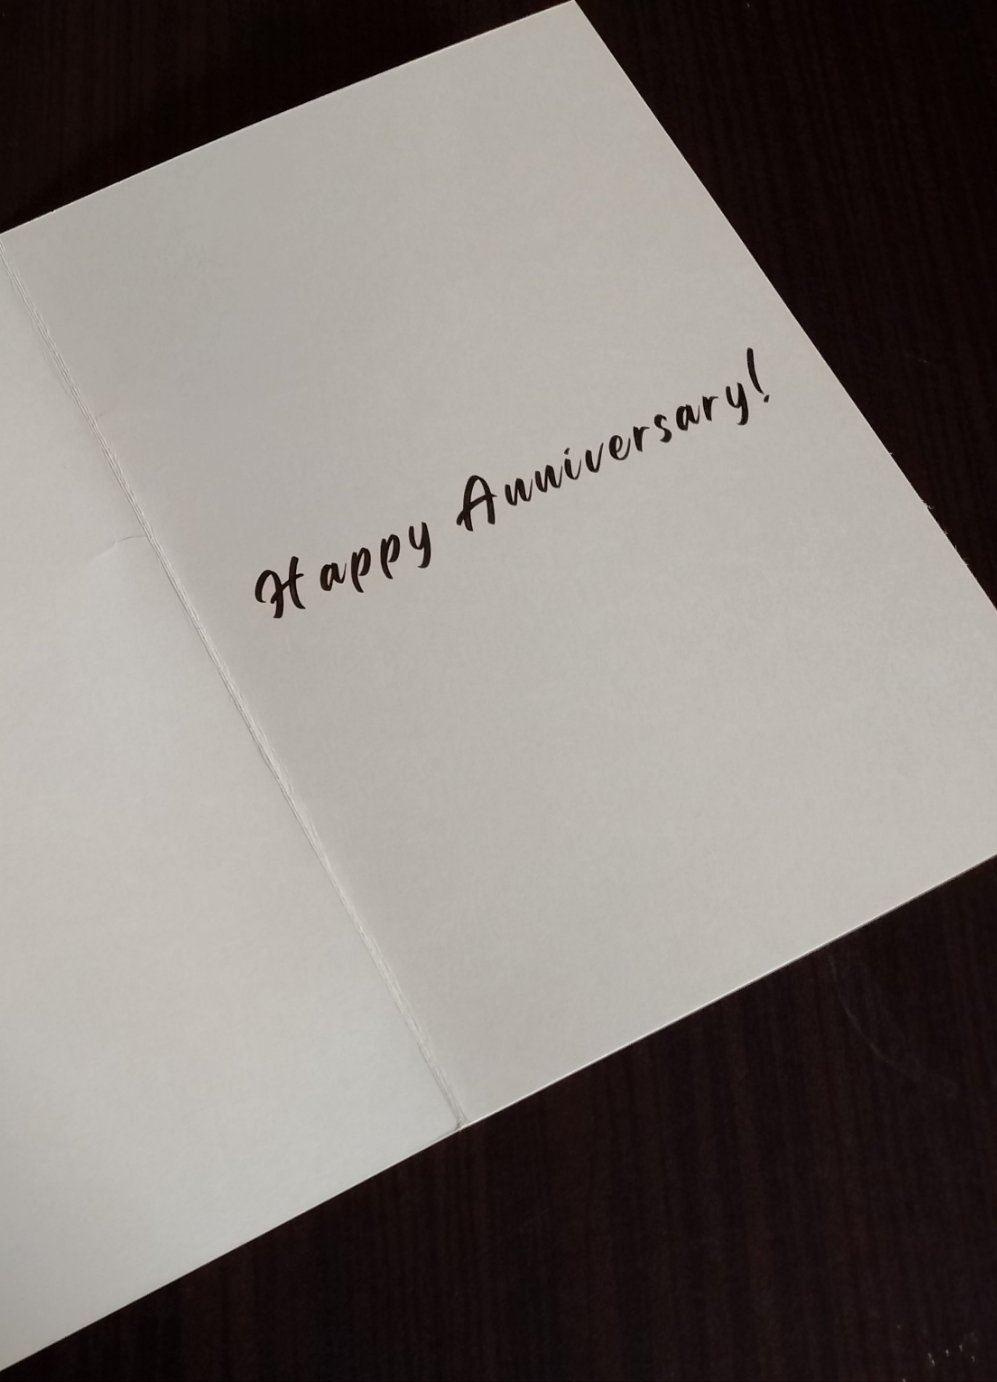 Happy Anniversary!